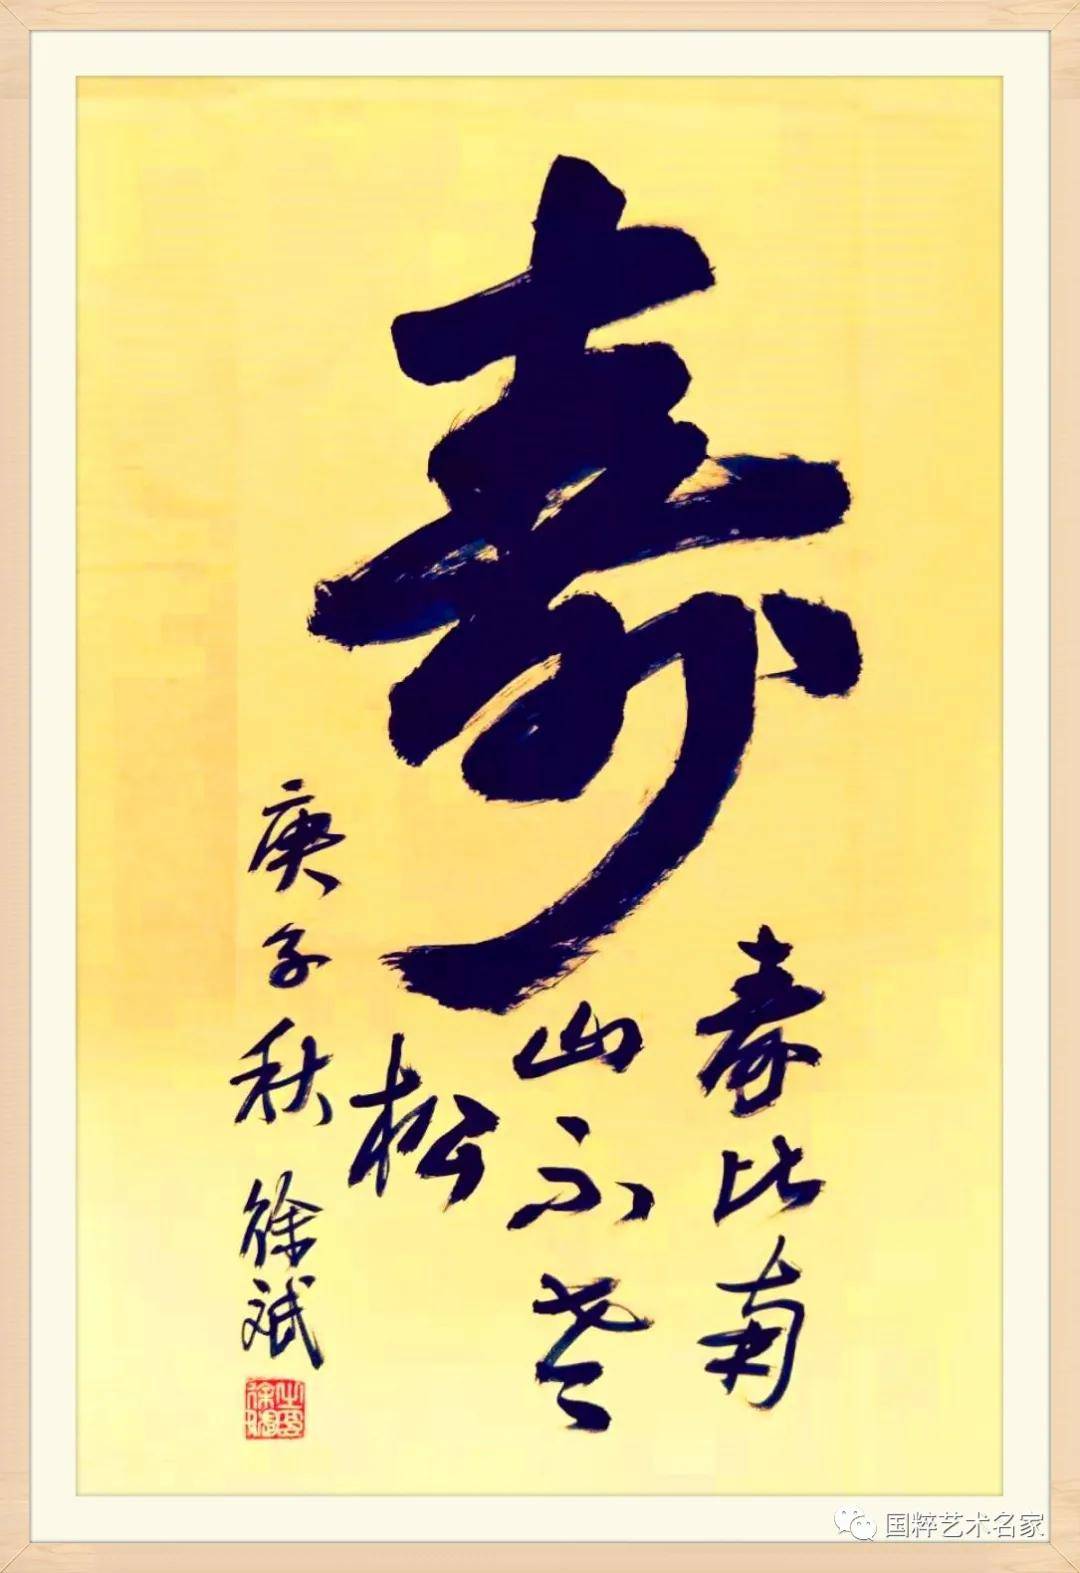 寿
寿比南
山不老
松
庚子秋 徐斌
国粹艺术名家